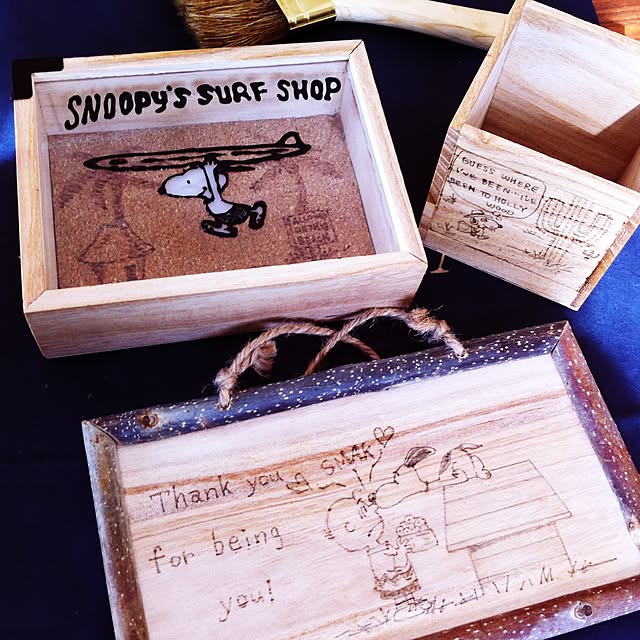 SNOOPY'S SURF SHOP
GUESS WHERE
I'VE BEEN...I'VE
BEEN TO HOLLY
WOOD
Thank you
for being
you!
SMAK